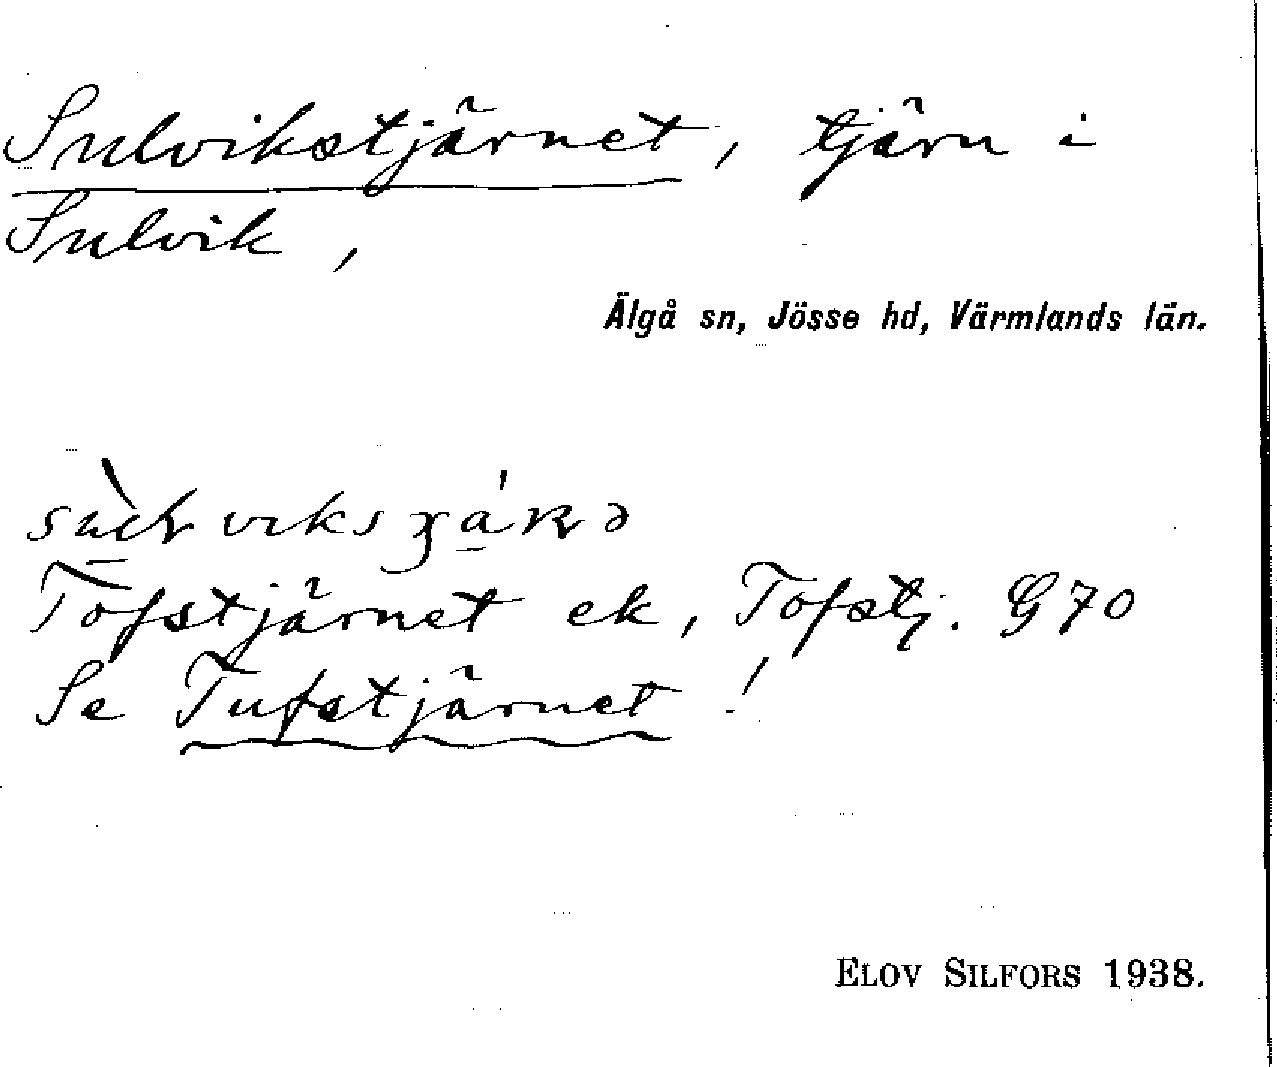 Sulvikstjärnet, tjärn i
Sulvik,
Älgå sn, Jösse hd, Värmlands län.
Tofstjärnet ek, Tofstj. G70
Se Tufstjärnet!
ELOV SILFORS 1938.